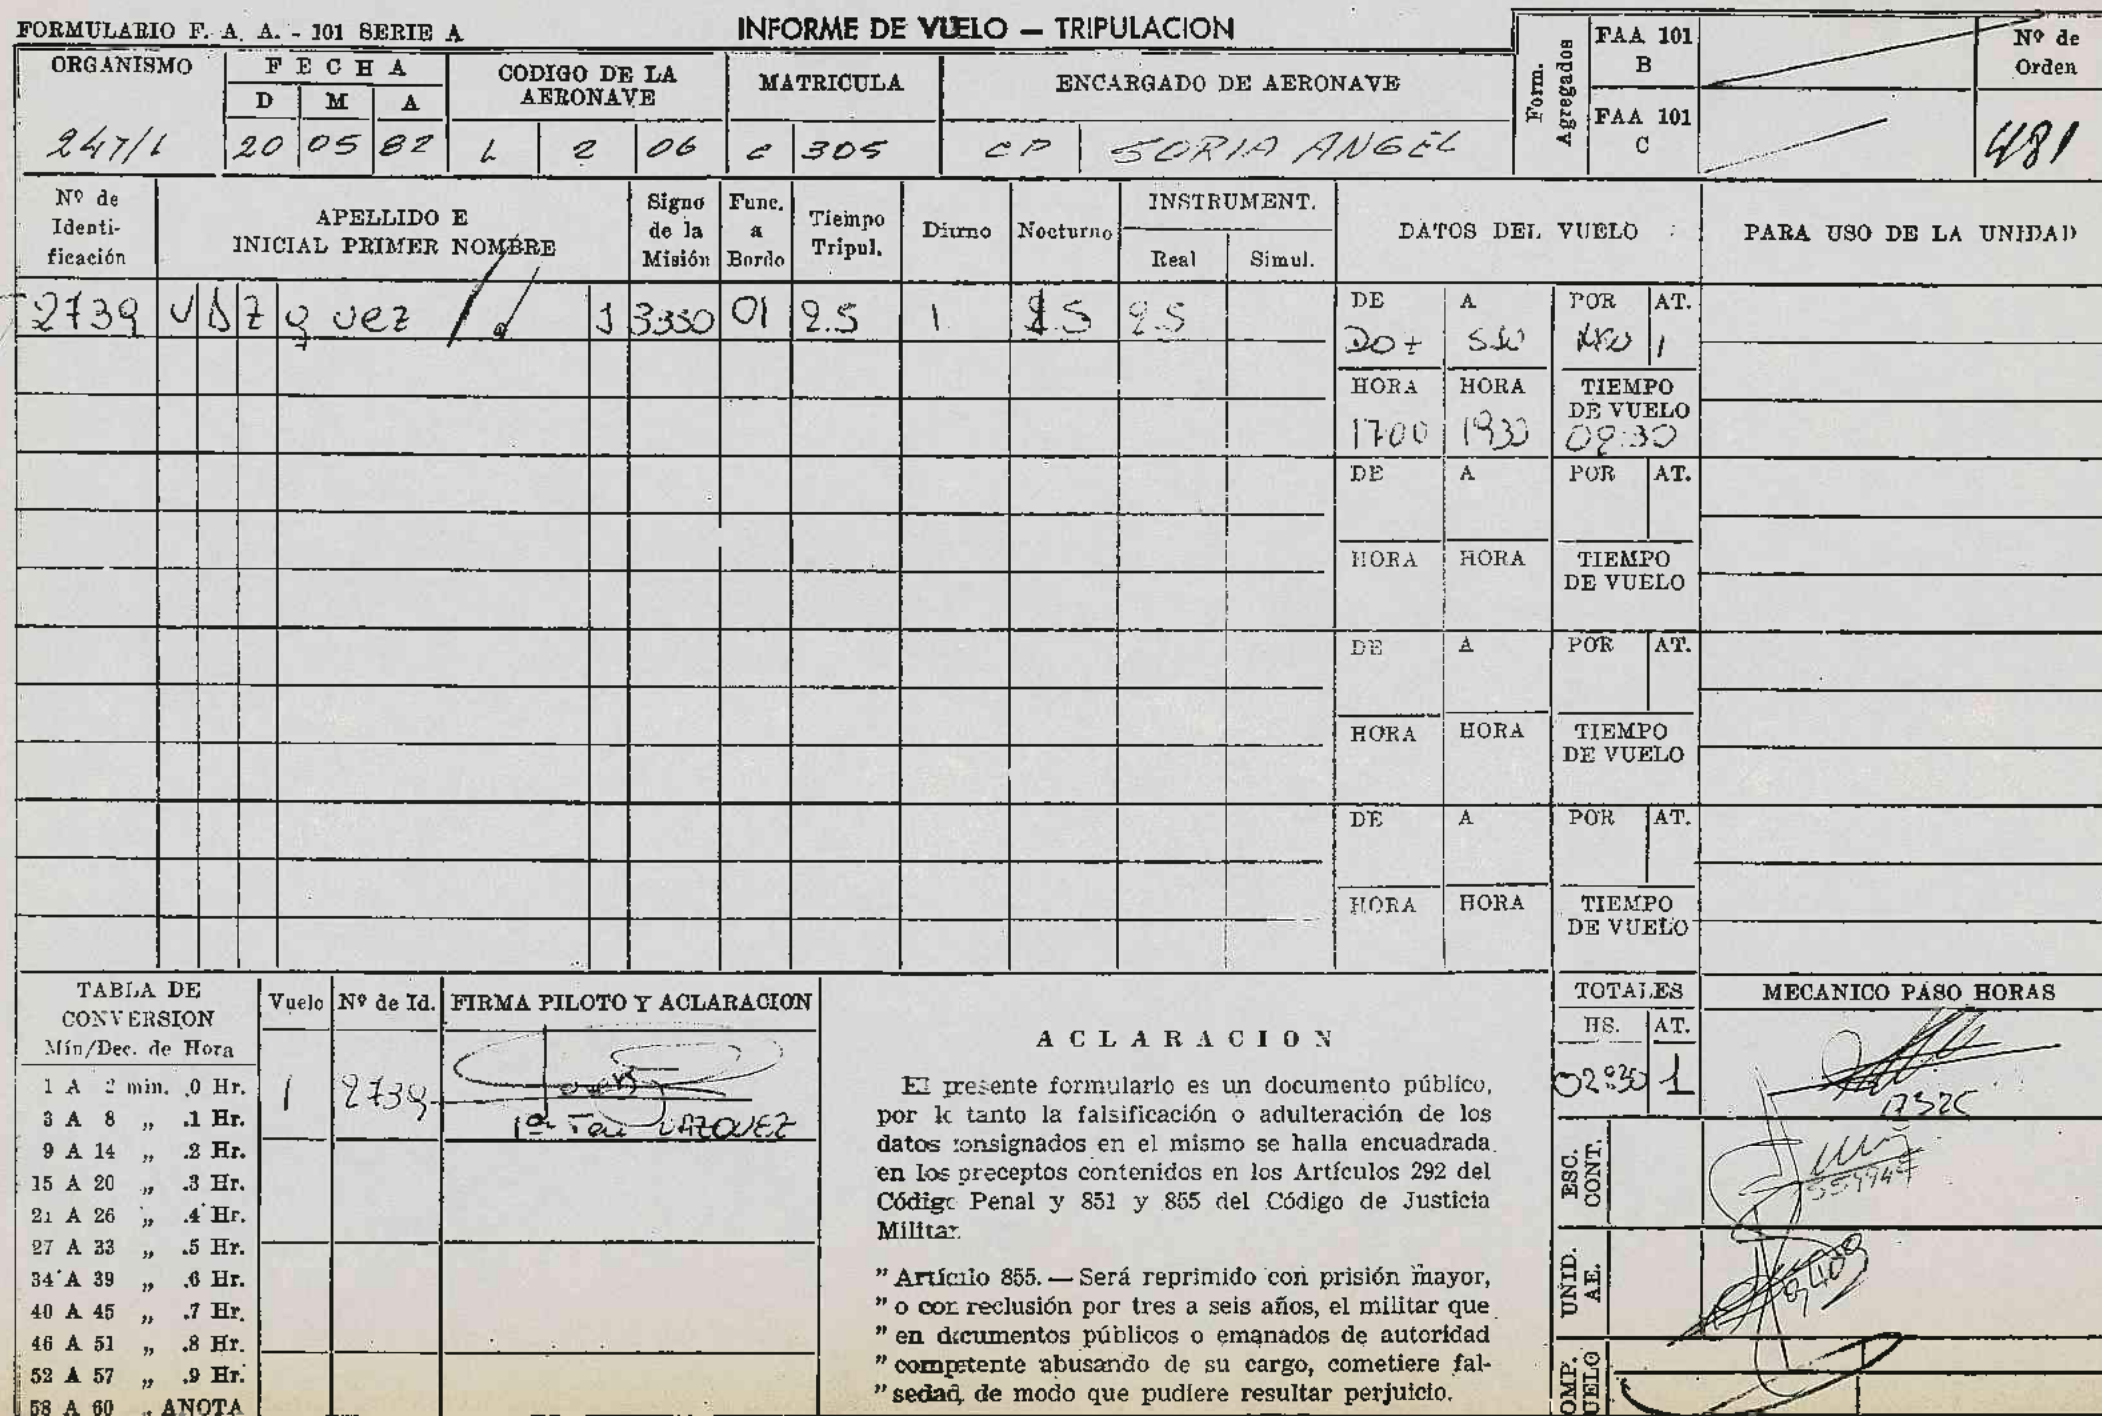 FORMULARIO F. A. A. - 101 SERIE A
INFORME DE VUELO — TRIPULACION
Form. Agregados
FAA 101 B
FAA 101 C
Nº de Orden
481
ORGANISMO
FECHA
D M A
CODIGO DE LA AERONAVE
MATRICULA
ENCARGADO DE AERONAVE
247/1 20 05 82 L 2 06 C 305 CP SORIA ANGEL
Nº de Identificación
APELLIDO E INICIAL PRIMER NOMBRE
Signo de la Misión
Func. a Bordo
Tiempo Tripul.
Diurno
Nocturno
INSTRUMENT.
Real Simul.
DATOS DEL VUELO
PARA USO DE LA UNIDAD
2739 VAZquez J 3330 01 2.5 1 2.5 2.5
DE A POR AT.
SJU 1
HORA HORA TIEMPO DE VUELO
1700 1930 02:30
DE A POR AT.
HORA HORA TIEMPO DE VUELO
DE A POR AT.
HORA HORA TIEMPO DE VUELO
DE A POR AT.
HORA HORA TIEMPO DE VUELO
TABLA DE CONVERSION
Mín/Dec. de Hora
1 A 2 min. .0 Hr.
3 A 8 „ .1 Hr.
9 A 14 „ .2 Hr.
15 A 20 „ .3 Hr.
21 A 26 „ .4 Hr.
27 A 33 „ .5 Hr.
34 A 39 „ .6 Hr.
40 A 45 „ .7 Hr.
46 A 51 „ .8 Hr.
52 A 57 „ .9 Hr.
58 A 60 „ ANOTA
Vuelo Nº de Id. FIRMA PILOTO Y ACLARACION
1 2739
VAZQUEZ
ACLARACION
El presente formulario es un documento público,
por lo tanto la falsificación o adulteración de los
datos consignados en el mismo se halla encuadrada
en los preceptos contenidos en los Artículos 292 del
Código Penal y 851 y 855 del Código de Justicia
Militar.
" Artículo 855. — Será reprimido con prisión mayor,
" o con reclusión por tres a seis años, el militar que
" en documentos públicos o emanados de autoridad
" competente abusando de su cargo, cometiere fal-
" sedad, de modo que pudiere resultar perjuicio.
TOTALES
HS. AT.
02:30 1
MECANICO PASO HORAS
ESC. CONT.
UNID. AE.